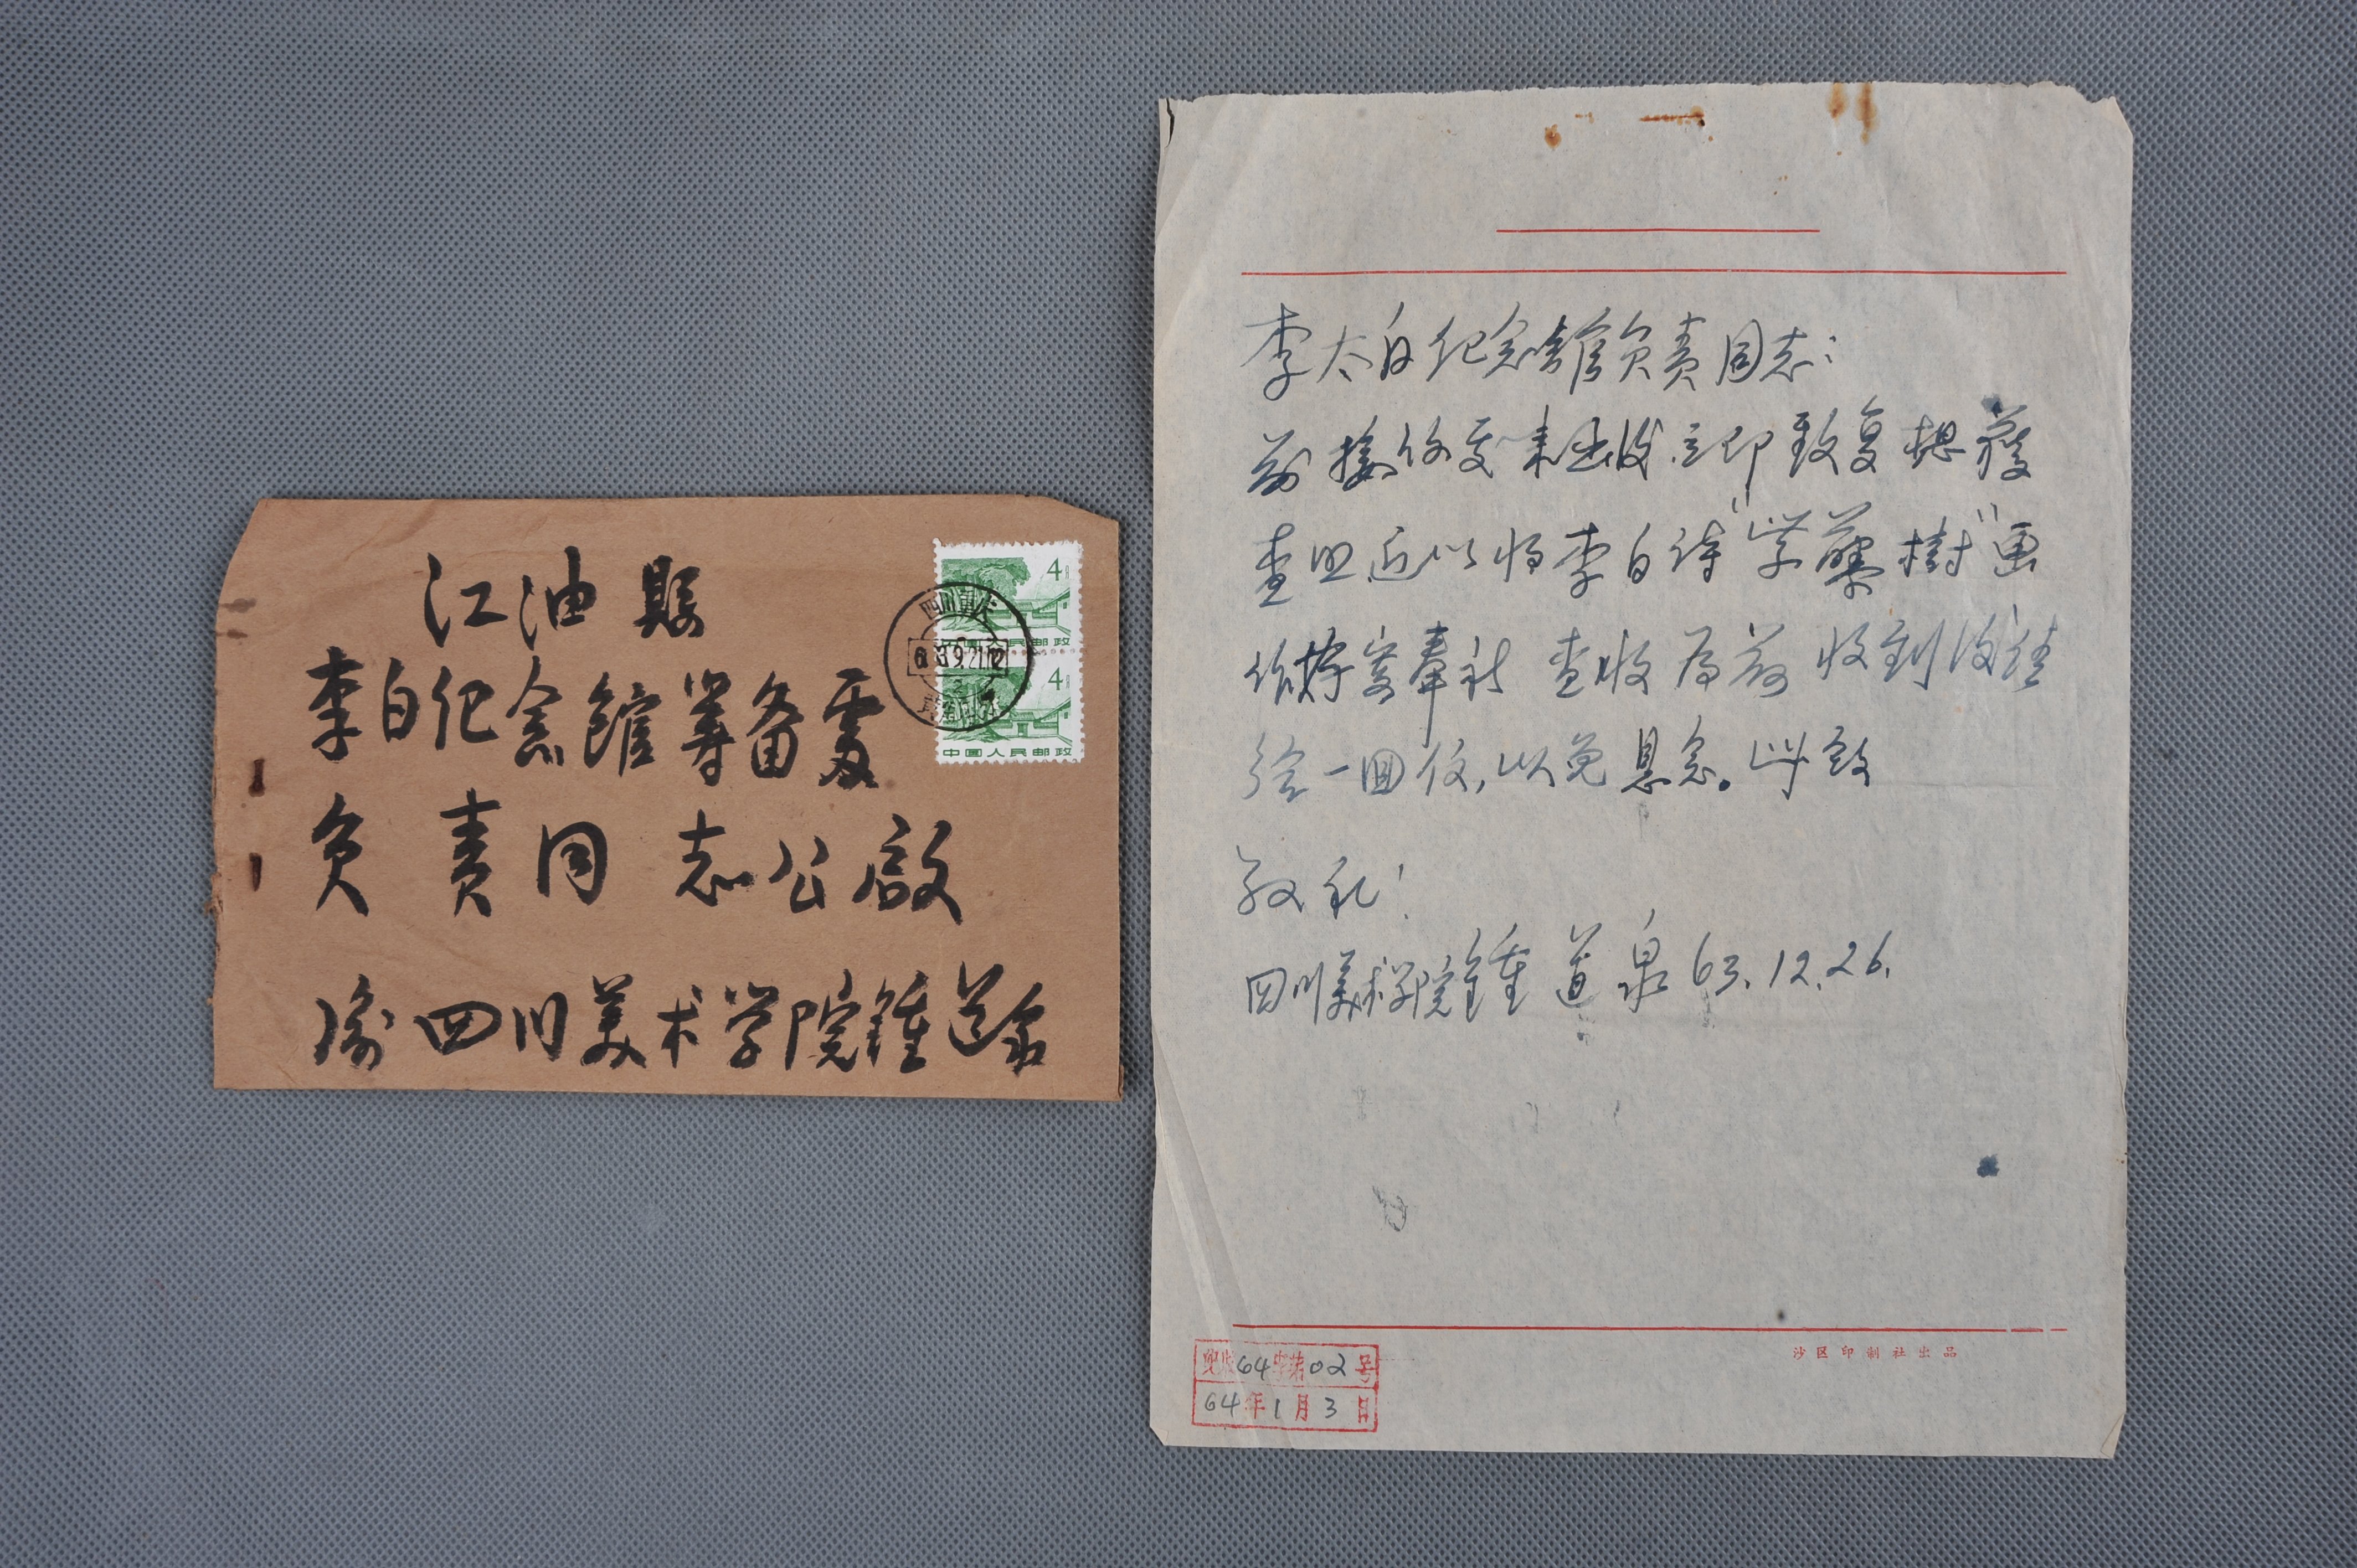 江油縣
李白纪念館筹备處
负责同志公啟
渝四川美术学院鍾道泉
4
4
中国人民邮政
四川重庆
63.9.21.12
李太白纪念館负责同志：
前接你处来函后立即致复想获
查照近以将李白诗"学蘖樹"画
作 寄奉祈 查收为荷 收到后请
给一回信，以免悬念。此致
敬礼！
四川美术学院鍾道泉 63.12.26.
沙区印制社出品
64 字第 02 号
64年1月3日